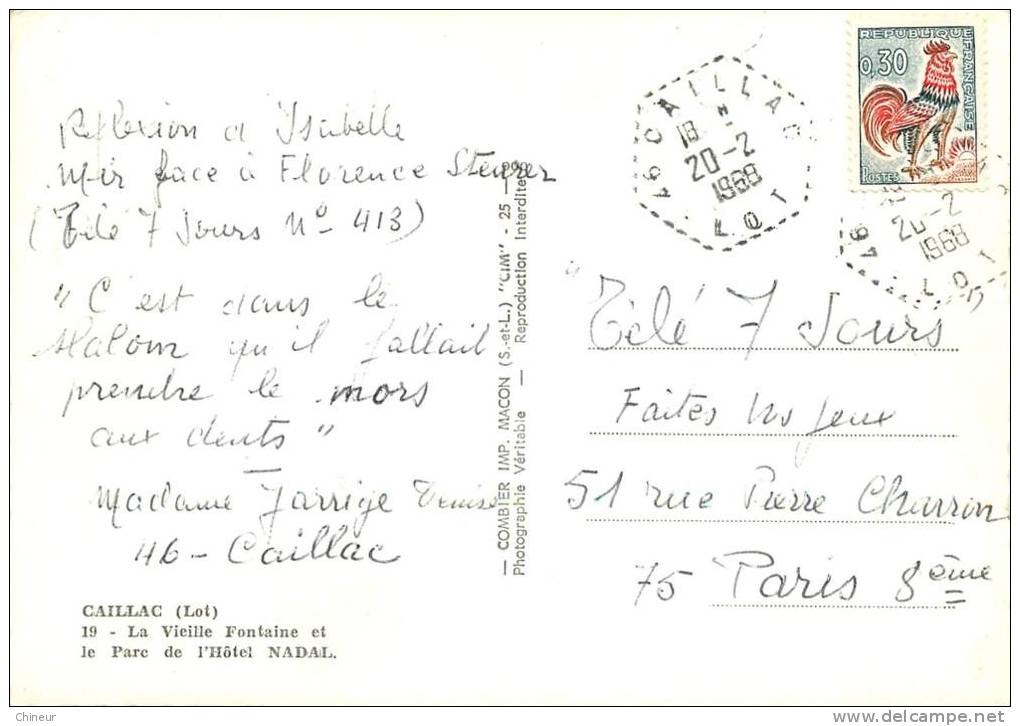 Réflexion d'Isabelle
Mir face à Florence Steurer
(Télé 7 Jours N° 413)
"C'est dans le
slalom qu'il fallait
prendre le mors
aux dents"
Madame Jarrige Denise
46 - Caillac
CAILLAC (Lot)
19 - La Vieille Fontaine et
le Parc de l'Hôtel NADAL.
— COMBIER IMP. MACON (S.-et-L.) "CIM" - 25
Photographie Véritable — Reproduction Interdite
46 CAILLAC
18
20-2
1968
LOT
RÉPUBLIQUE FRANÇAISE
0,30
POSTES
46
20-2
1968
LOT
"Télé 7 Jours"
Faites vos jeux
51 rue Pierre Charron
75 Paris 8ème
Chineur
delcampe.net